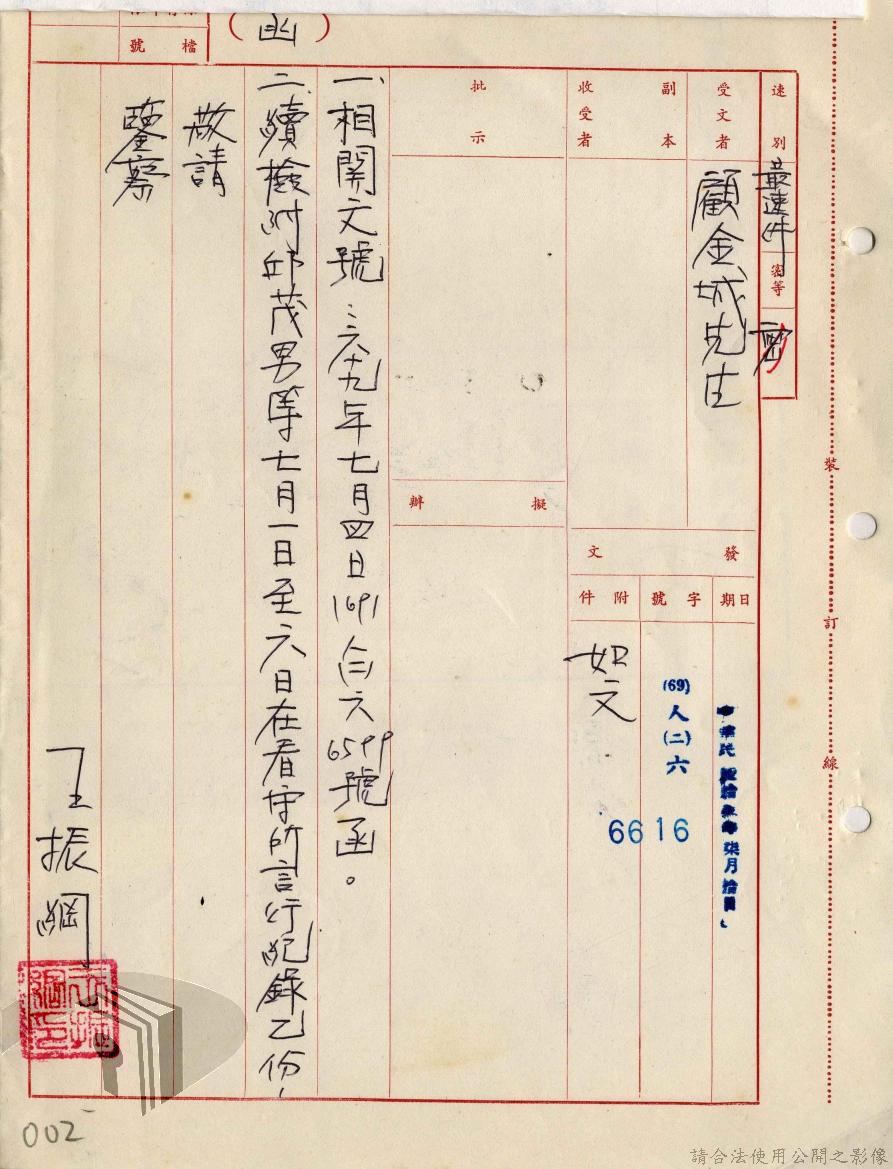 (函)
檔號
速別
最速件
密等
密
受文者
顧金城先生
副本
收受者
批示
擬辦
發文
日期
中華民國 柒月拾日
字號
(69)人(二)六
6616
附件
如文
一、相關文號:六十九年七月四日(69)人(二)六6599號函。
二、續檢附邱茂男等七月一日至六日在看守所言行紀錄乙份,
敬請
鑒察
王振綱
裝
訂
線
002
請合法使用公開之影像